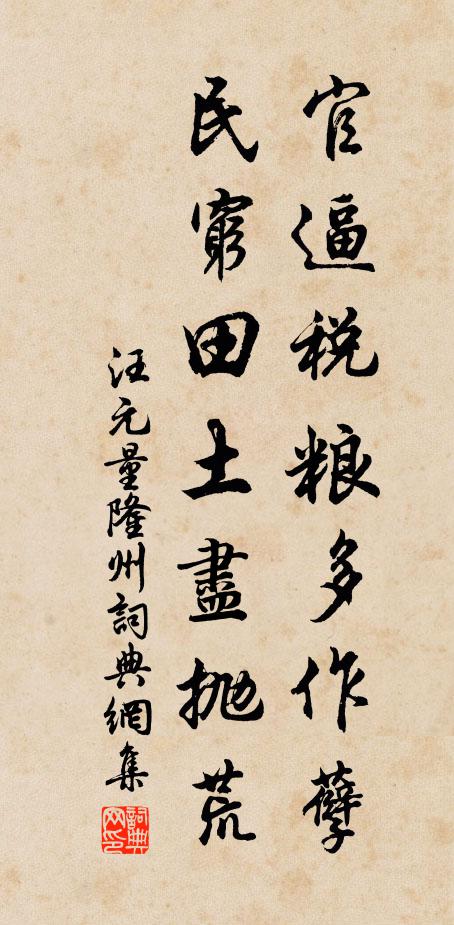 官逼税粮多作孽
民窮田土盡抛荒
汪元量隆州詞典網集
詞典网印